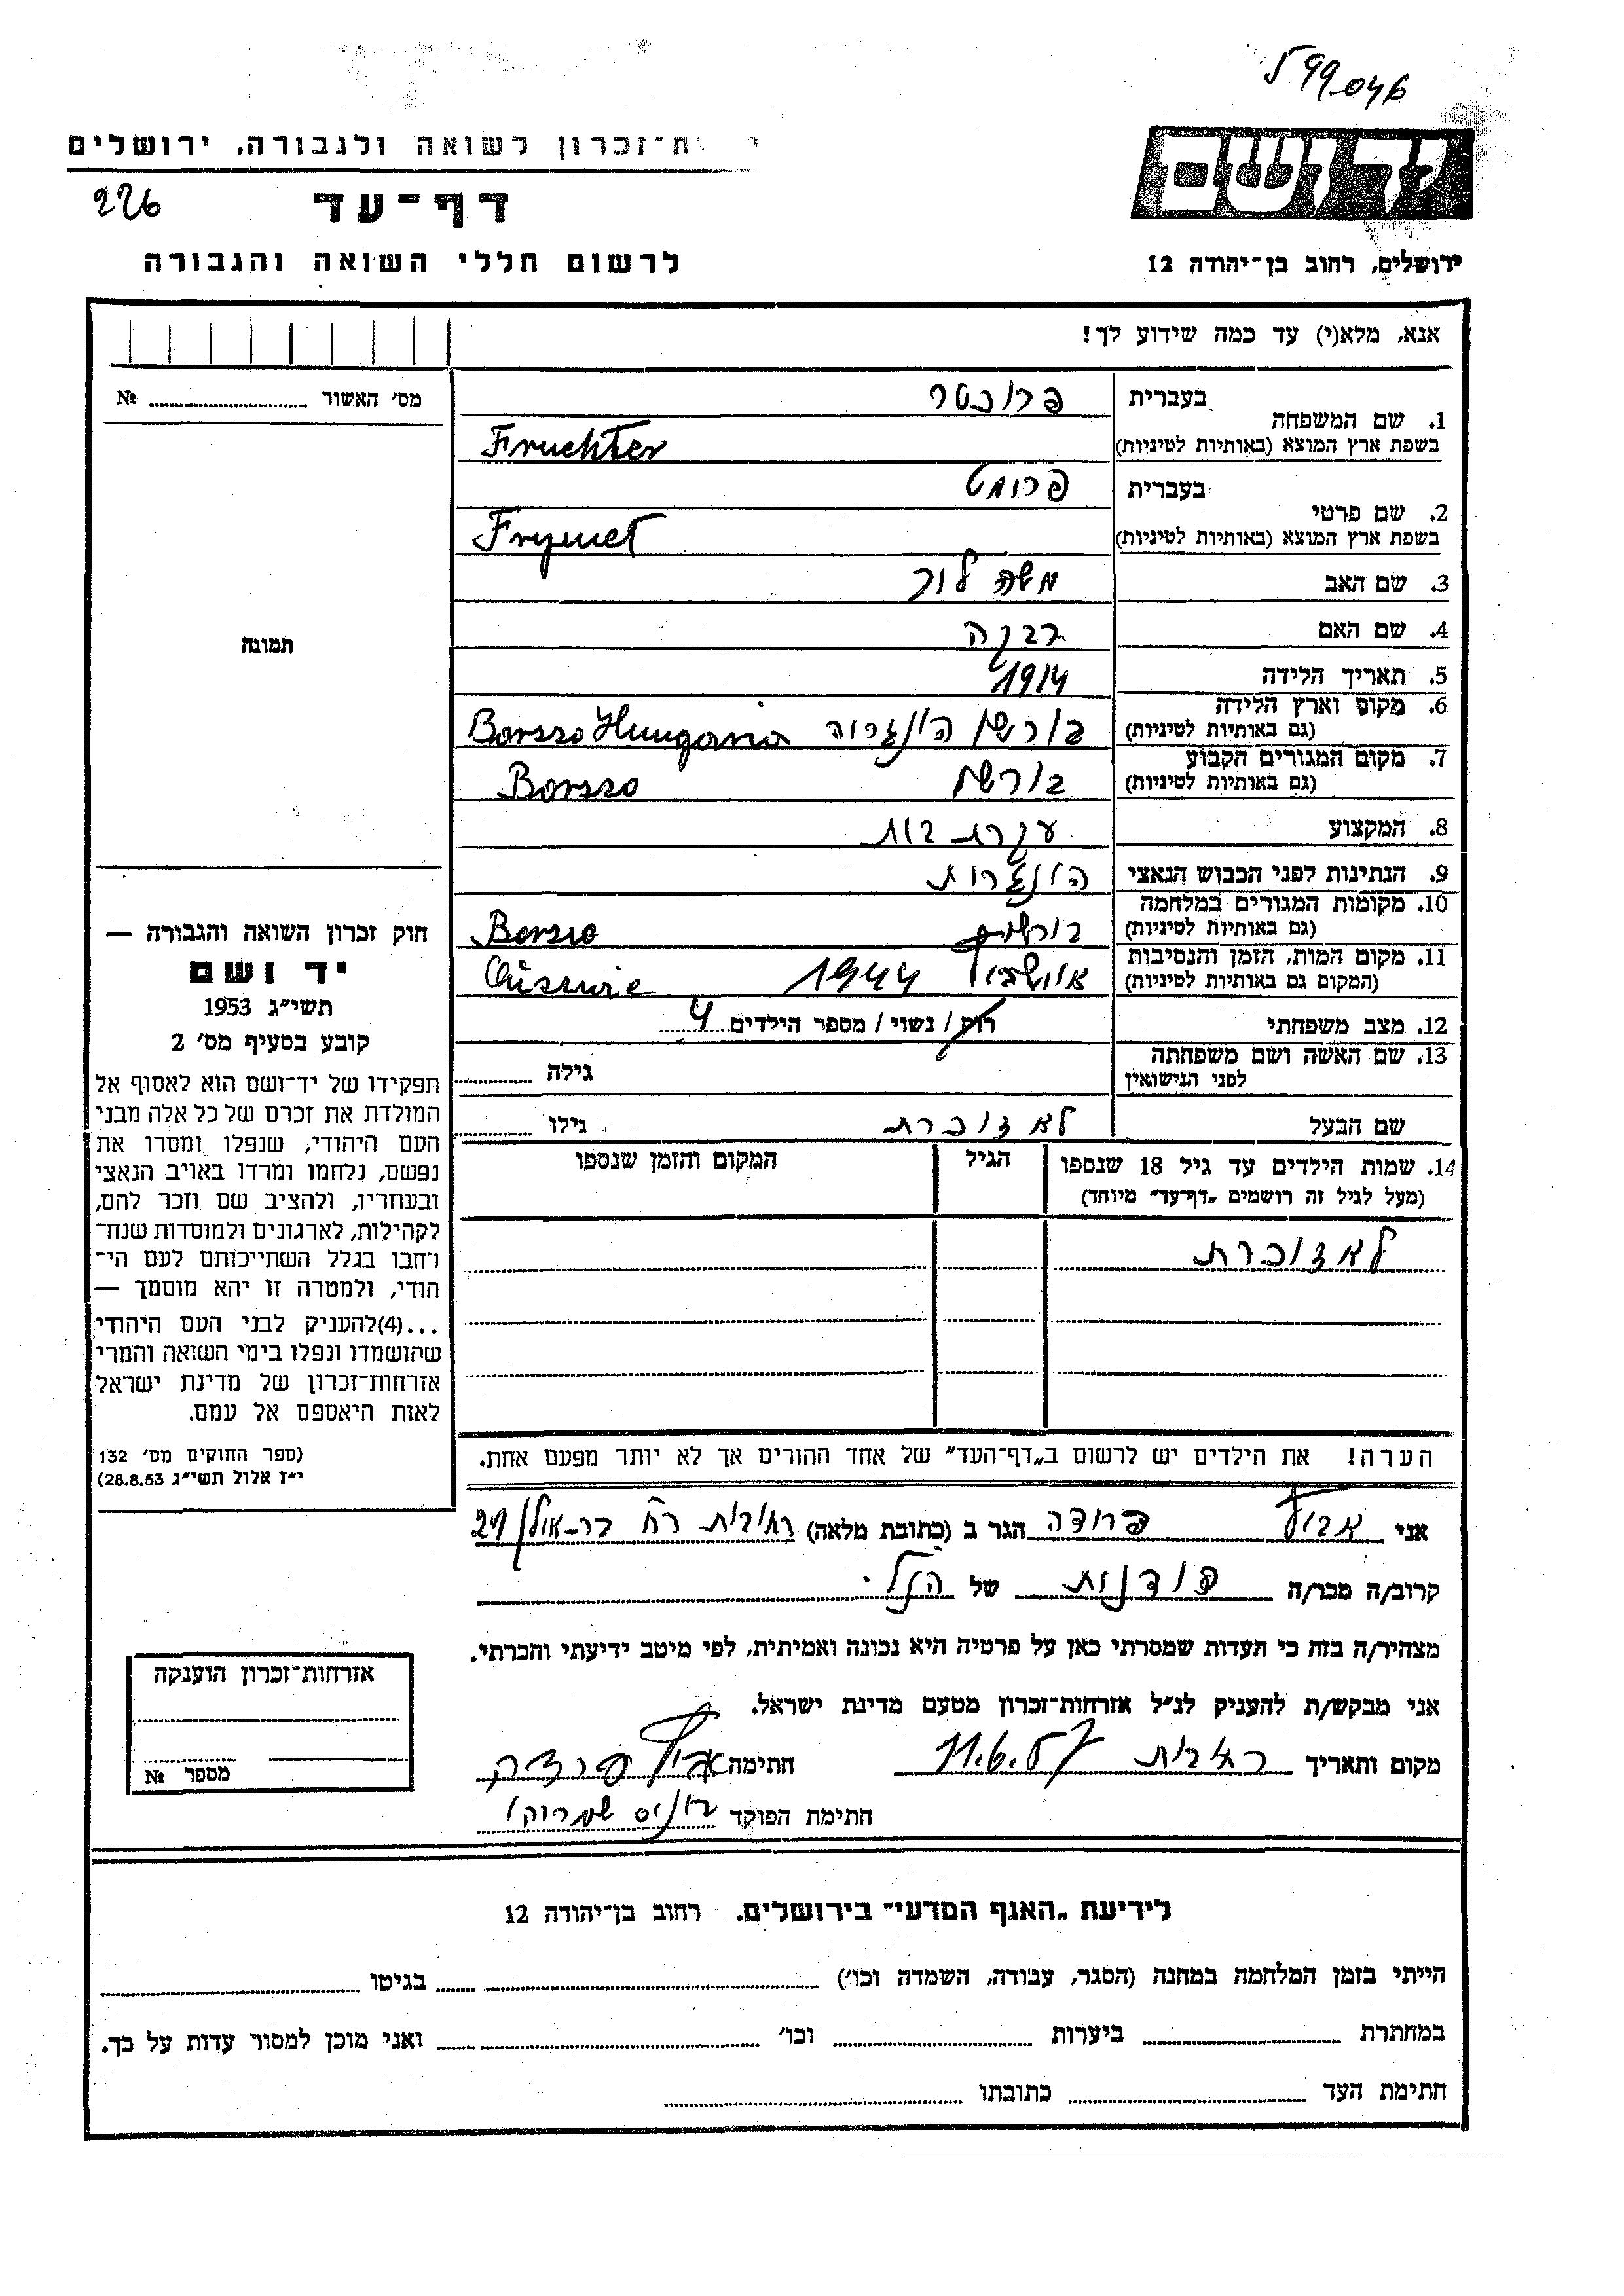 599046
ת-זכרון לשואה ולגבורה, ירושלים
226
דף-עד
לרשום חללי השואה והגבורה
יד ושם
ירושלים, רחוב בן-יהודה 12
אנא, מלא(י) עד כמה שידוע לך!
מס׳ האשור № 
1. שם המשפחה
בעברית פרוכטר
בשפת ארץ המוצא (באותיות לטיניות) Fruchter
2. שם פרטי
בעברית פרומט
בשפת ארץ המוצא (באותיות לטיניות) Frymet
3. שם האב משה
4. שם האם רבקה
5. תאריך הלידה 1914
6. מקום וארץ הלידה
(גם באותיות לטיניות) בורשה הונגריה Borsso Hungaria
7. מקום המגורים הקבוע
(גם באותיות לטיניות) בורשה Borsso
8. המקצוע עקרת בית
9. הנתינות לפני הכבוש הנאצי הונגרית
10. מקומות המגורים במלחמה
(גם באותיות לטיניות) Borsso
11. מקום המות, הזמן והנסיבות
(המקום גם באותיות לטיניות) 1944
12. מצב משפחתי רוק / נשוי / מספר הילדים 4
13. שם האשה ושם משפחתה
לפני הנישואין
גילה
שם הבעל לא זוכרת גילו
14. שמות הילדים עד גיל 18 שנספו
(מעל לגיל זה רושמים „דף-עד" מיוחד)
הגיל
המקום והזמן שנספו
לא זוכרת
הערה! את הילדים יש לרשום ב„דף-העד" של אחד ההורים אך לא יותר מפעם אחת.
תמונה
חוק זכרון השואה והגבורה —
יד ושם
תשי״ג 1953
קובע בסעיף מס׳ 2
תפקידו של יד-ושם הוא לאסוף אל
המולדת את זכרם של כל אלה מבני
העם היהודי, שנפלו ומסרו את
נפשם, נלחמו ומרדו באויב הנאצי
ובעוזריו, ולהציב שם וזכר להם,
לקהילות, לארגונים ולמוסדות שנח-
רחבו בגלל השתייכותם לעם הי-
הודי, ולמטרה זו יהא מוסמך —
...(4)להעניק לבני העם היהודי
שהושמדו ונפלו בימי השואה והמרי
אזרחות-זכרון של מדינת ישראל
לאות היאספם אל עמם.
(ספר החוקים מס׳ 132
י״ז אלול תשי״ג 28.8.53)
אני פרידה הגר ב (כתובת מלאה)
קרוב/ה מכר/ה של הנ״ל.
מצהיר/ה בזה כי העדות שמסרתי כאן על פרטיה היא נכונה ואמיתית, לפי מיטב ידיעתי והכרתי.
אני מבקש/ת להעניק לנ״ל אזרחות-זכרון מטעם מדינת ישראל.
מקום ותאריך חתימה
חתימת הפוקד
אזרחות-זכרון הוענקה
מספר №
לידיעת „האגף המדעי" בירושלים. רחוב בן-יהודה 12
הייתי בזמן המלחמה במחנה (הסגר, עבודה, השמדה וכו׳) בגיטו
במחתרת ביערות וכו׳ ואני מוכן למסור עדות על כך.
חתימת העד כתובתו